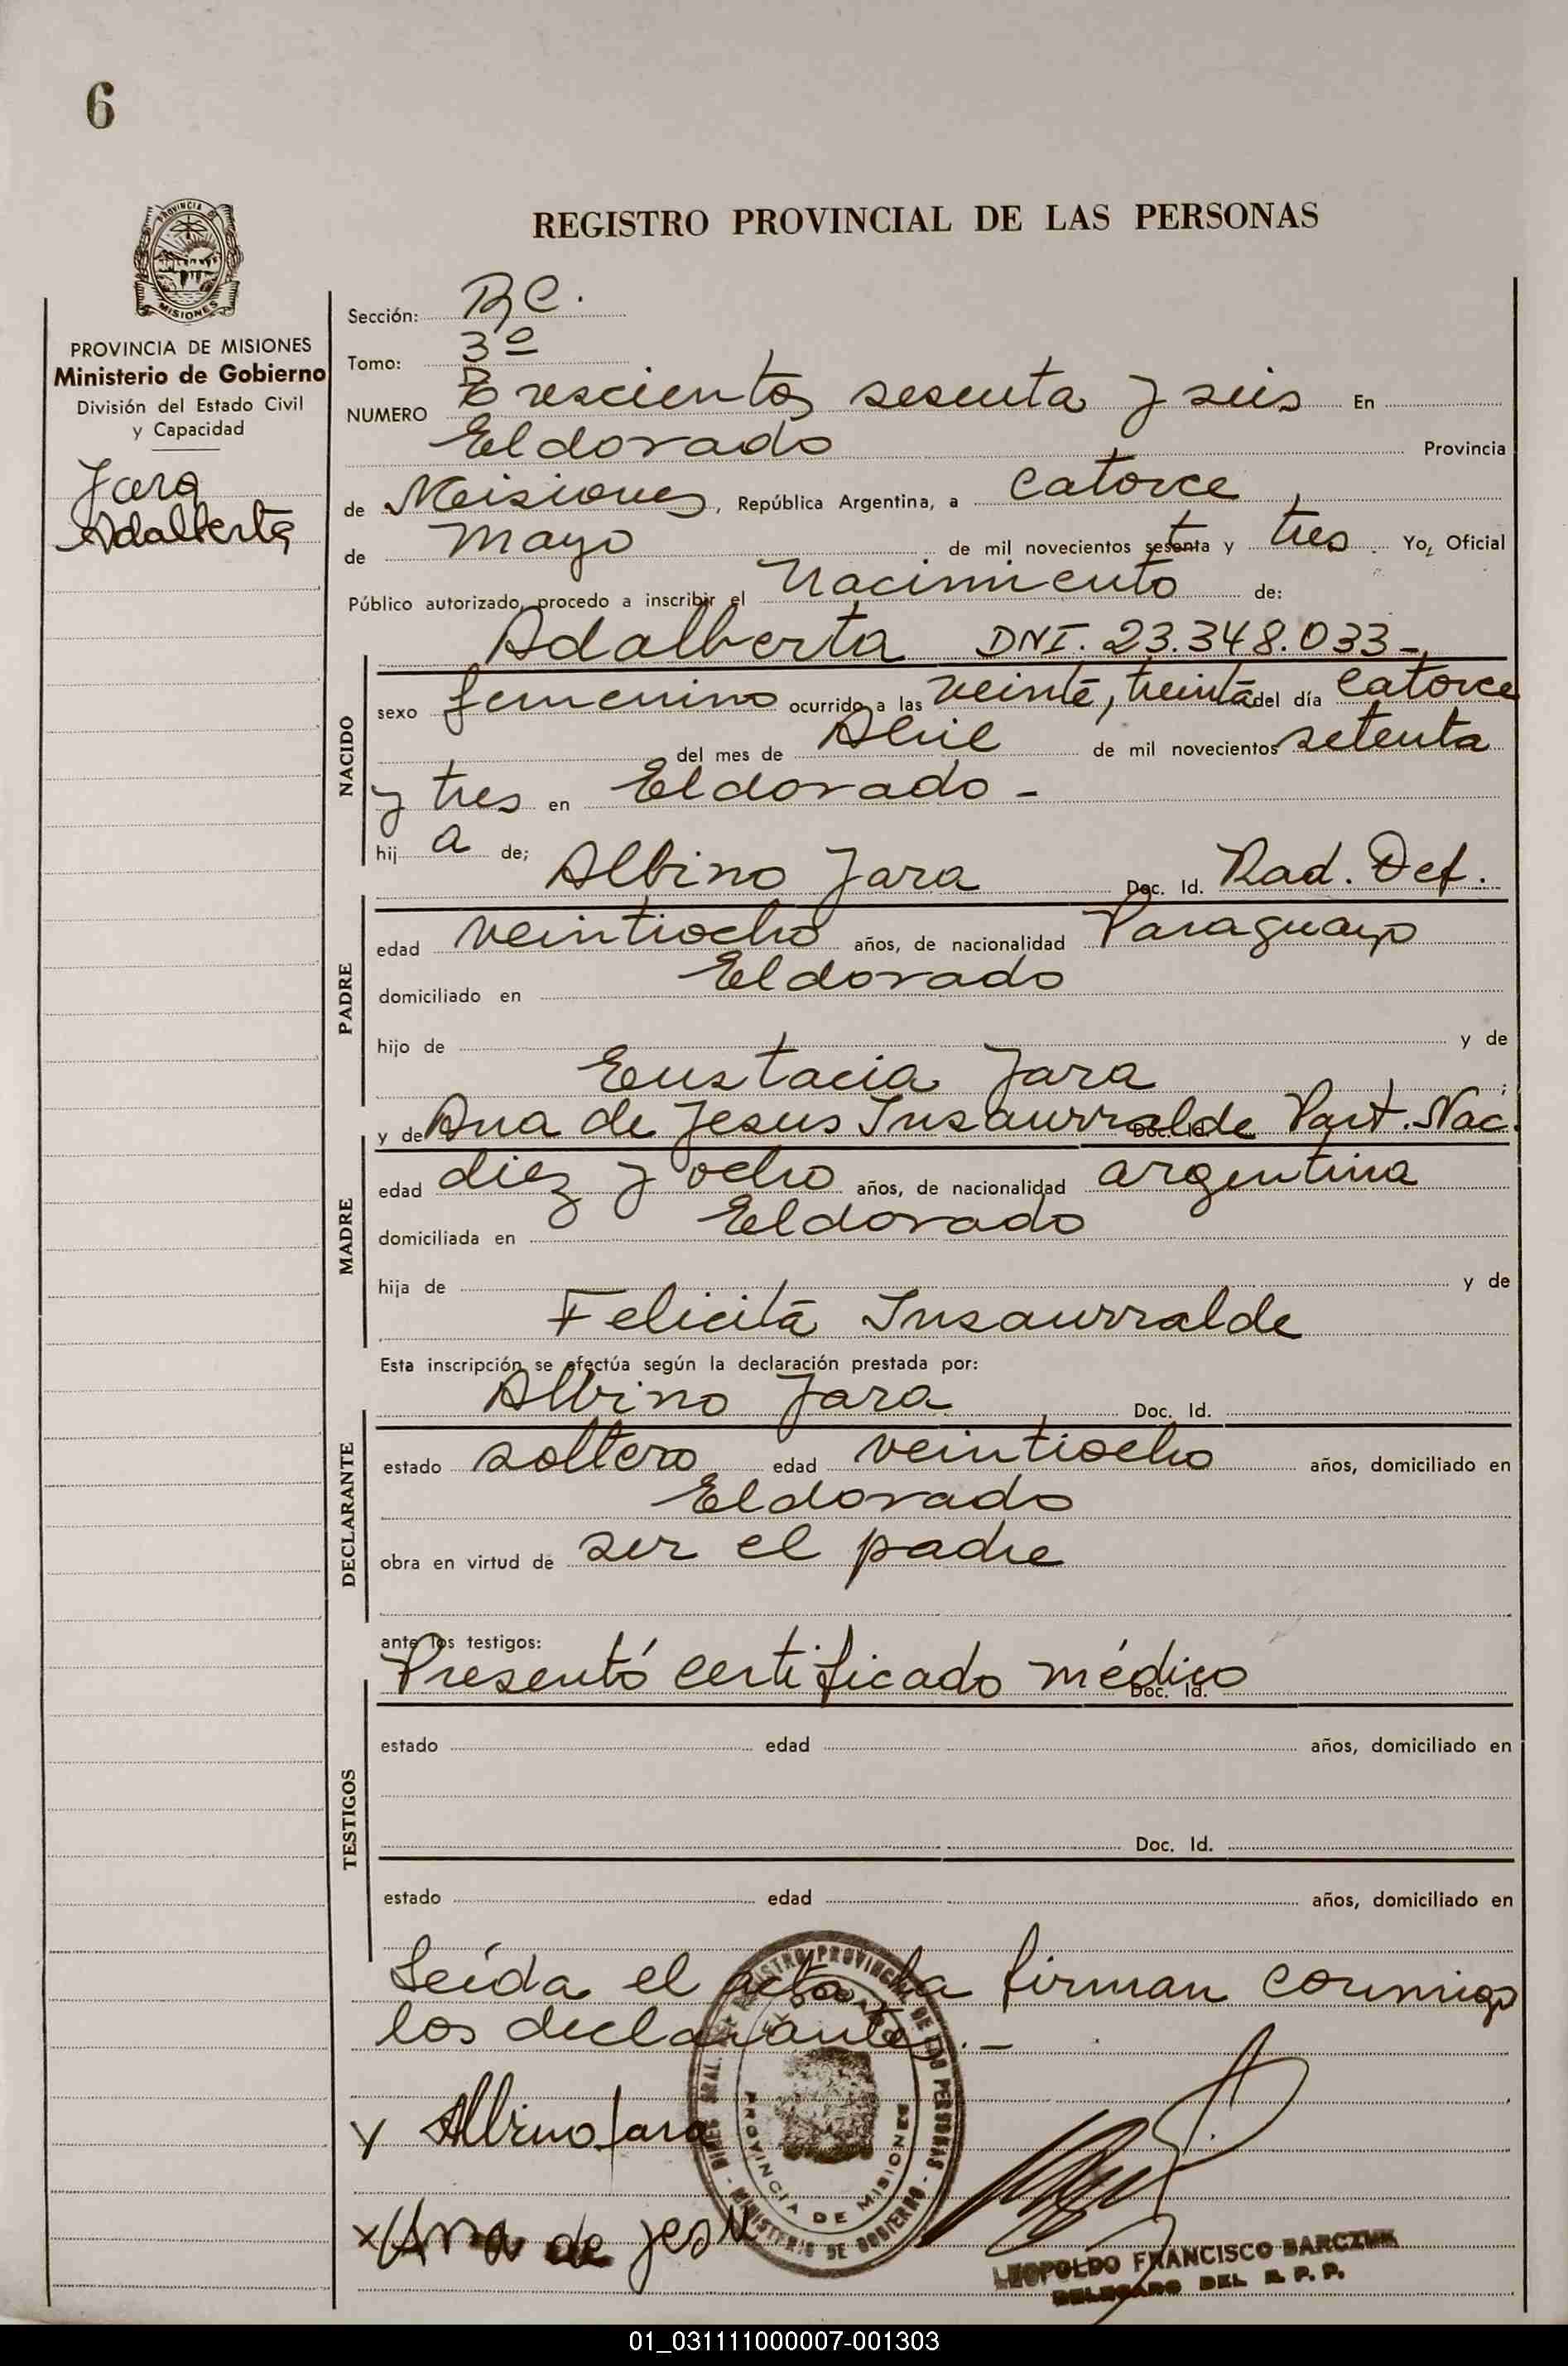 6
REGISTRO PROVINCIAL DE LAS PERSONAS
PROVINCIA DE MISIONES
MISIONES
PROVINCIA DE MISIONES
Ministerio de Gobierno
División del Estado Civil
y Capacidad
Jara
Adalberta
Sección:
Tomo: 3º
NUMERO Trescientos sesenta y seis En
Eldorado Provincia
de Misiones, República Argentina, a catorce
de Mayo de mil novecientos setenta y tres Yo, Oficial
Público autorizado, procedo a inscribir el Nacimiento de:
Adalberta DNI. 23.348.033-
NACIDO
sexo femenino ocurrido a las veinte, treinta del día catorce
del mes de Abril de mil novecientos setenta
y tres en Eldorado -
hij a de;
Albino Jara Doc. Id. Rad. Def.
PADRE
edad veintiocho años, de nacionalidad Paraguayo
domiciliado en Eldorado
hijo de y de
Eustacia Jara ;
y de Ana de Jesus Insaurralde Doc. Id. Part. Nac.
MADRE
edad diez y ocho años, de nacionalidad argentina
domiciliada en Eldorado
hija de y de
Felicita Insaurralde
Esta inscripción se efectúa según la declaración prestada por:
Albino Jara Doc. Id.
DECLARANTE
estado soltero edad veintiocho años, domiciliado en
Eldorado
obra en virtud de ser el padre
ante los testigos:
Presentó certificado médico Doc. Id.
TESTIGOS
estado edad años, domiciliado en
Doc. Id.
estado edad años, domiciliado en
Leída el acta la firman conmigo
los declarantes.-
REGISTRO PROVINCIAL DE LAS PERSONAS - MINISTERIO DE GOBIERNO - DIREC. GRAL.
ELDORADO
PROVINCIA DE MISIONES
x Albino Jara
x Ana de Jesu
LEOPOLDO FRANCISCO BARCZUK
DELEGADO DEL R. P. P.
01_031111000007-001303